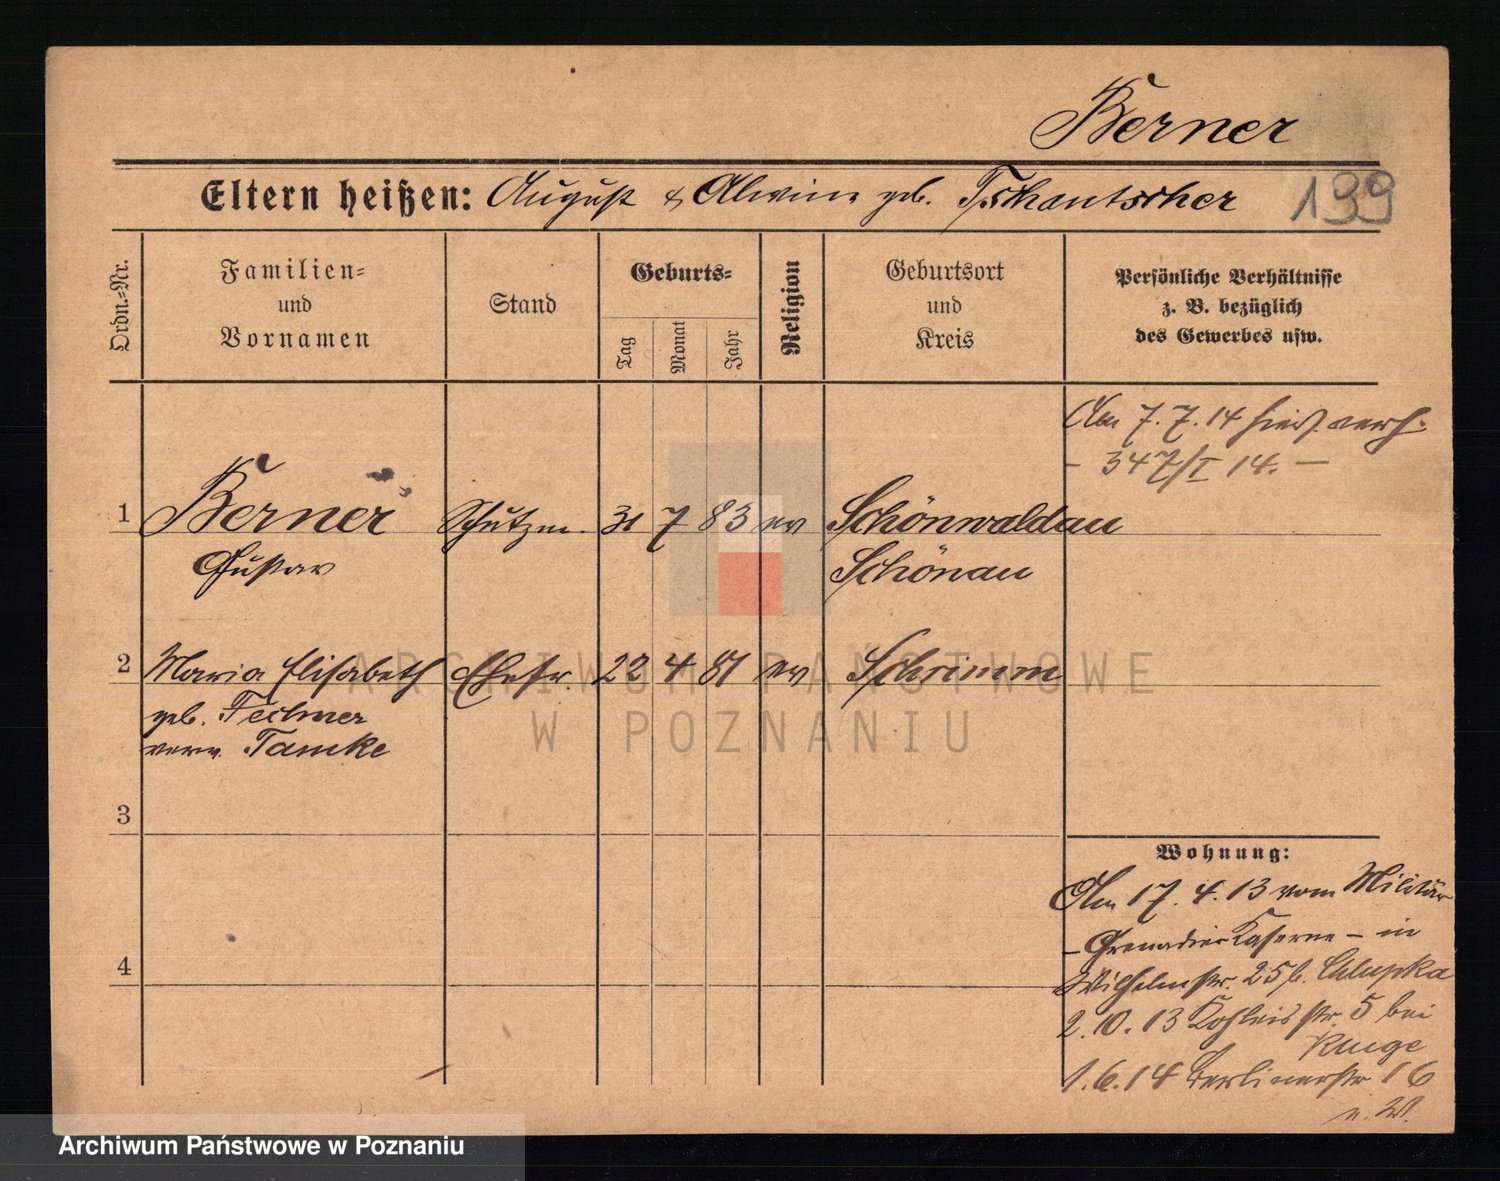 Berner
Eltern heißen: August & Alwine geb. Tschantscher 199
Ordn.=Nr.
Familien=
und
Vornamen
Stand
Geburts=
Tag
Monat
Jahr
Religion
Geburtsort
und
Kreis
Persönliche Verhältnisse
z. B. bezüglich
des Gewerbes usw.
Am 7.7.14 hies. verh.
- 347/I 14. -
1 Berner Schutzm. 31 7 83 ev Schönwaldau
Gustav Schönau
2 Maria Elisabeth Ehefr. 22 4 81 ev Schrimm
geb. Fechner
verw. Tamke
3
4
Wohnung:
Am 17.4.13 vom Militär
- Grenadier Kaserne - in
Wilhelmstr. 25 b. Chlupka
2.10.13 str. 5 bei
Kluge
1.6.14 Berlinerstr 16
e. W.
ARCHIWUM PAŃSTWOWE
W POZNANIU
Archiwum Państwowe w Poznaniu